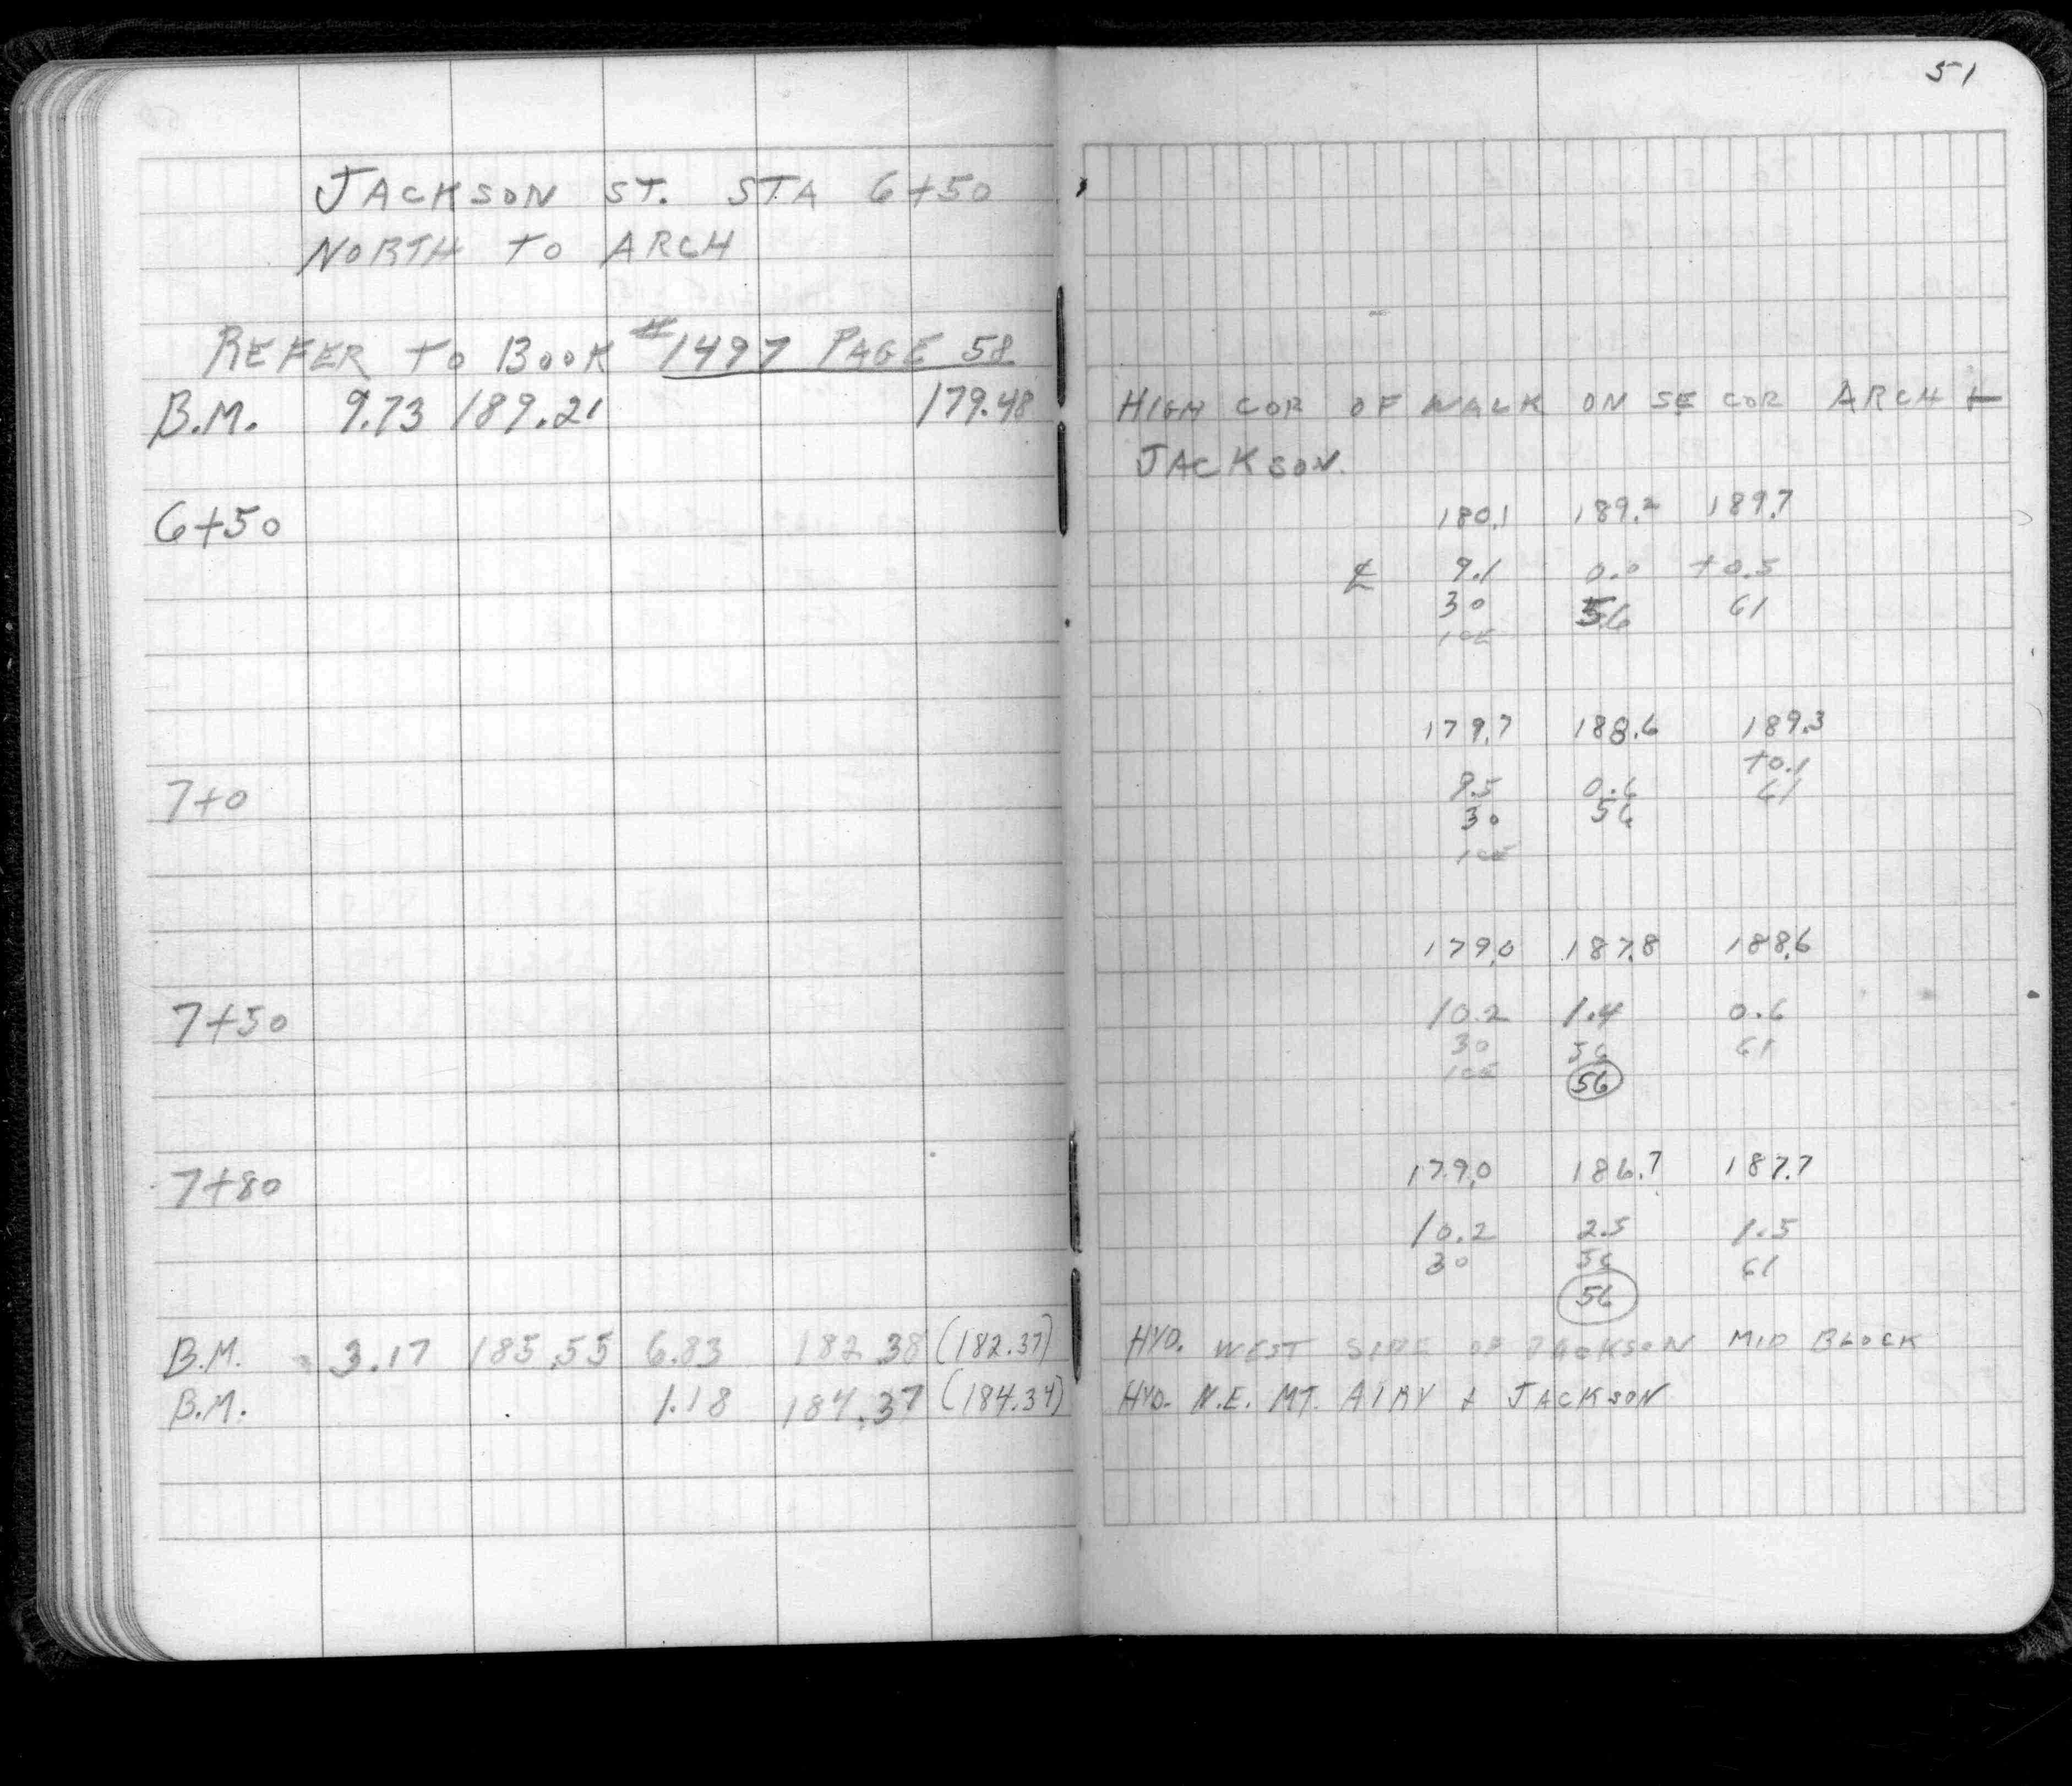 51
JACKSON ST. STA 6+50
NORTH TO ARCH
REFER TO BOOK #1497 PAGE 58
B.M. 9.73 189.21 179.48
6+50
7+0
7+50
7+80
B.M. 3.17 185.55 6.83 182.38 (182.37)
B.M. 1.18 184.37 (184.34)
HIGH COR OF WALK ON SE COR ARCH +
JACKSON.
180.1 189.2 189.7
℄ 9.1 0.0 +0.5
30 56 61
ICE
179.7 188.6 189.3
+0.1
9.5 0.6 61
30 56
ICE
179.0 187.8 188.6
10.2 1.4 0.6
30 56 61
ICE (56)
179.0 186.7 187.7
10.2 2.5 1.5
30 56 61
(56)
HYD. WEST SIDE OF JACKSON MID BLOCK
HYD. N.E. MT. AIRY + JACKSON